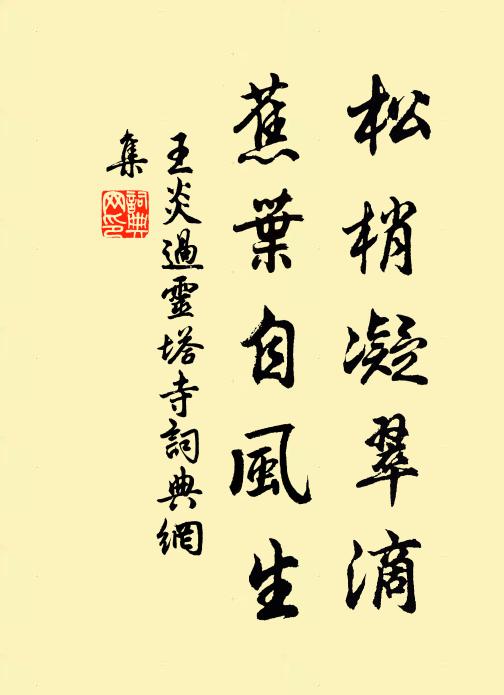 松梢凝翠滴
蕉葉自風生
王炎過靈塔寺詞典網
集
詞典網印